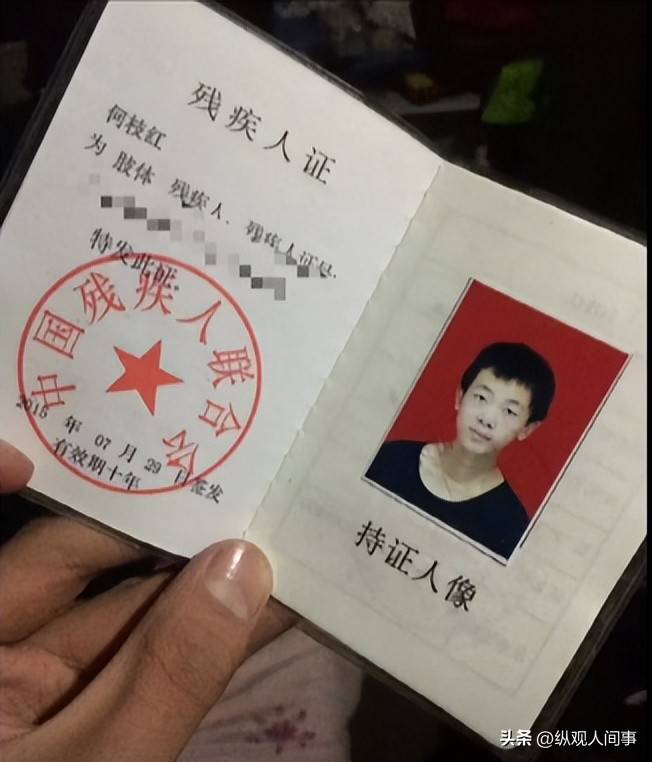 残疾人证
何枝红
为 肢体 残疾人. 残疾人证号.
特发此证.
中国残疾人联合会
2015 年 07 月 29 日签发
有效期十年
持证人像
头条 @纵观人间事